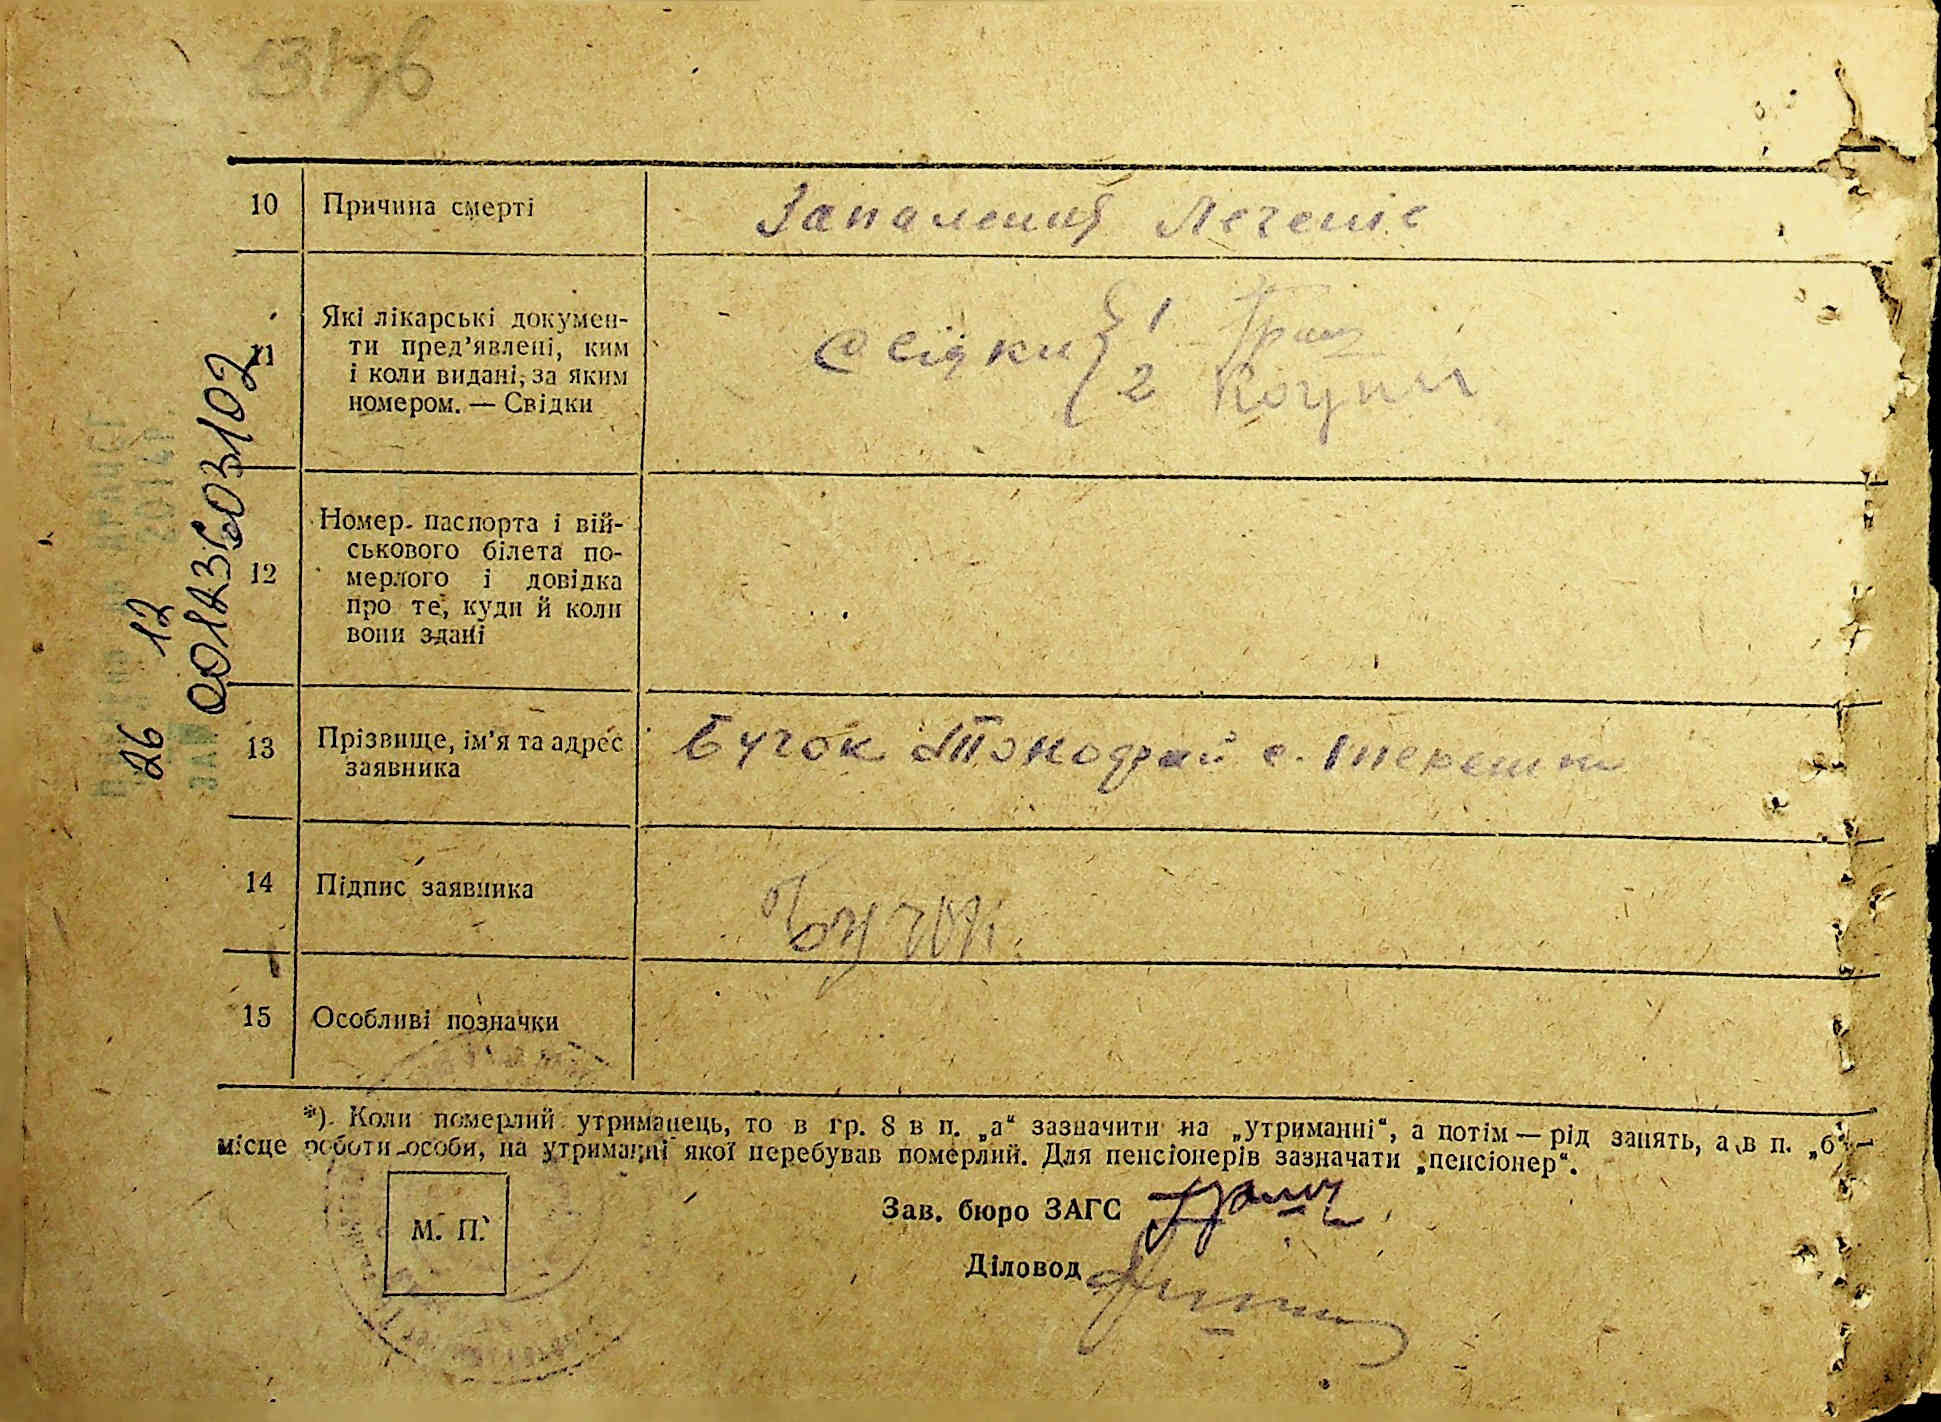 10 Причина смерті Запалений Легеніє
11 Які лікарські докумен-
ти пред’явлені, ким
і коли видані, за яким
номером. — Свідки
Свідки { 1
2
12 Номер паспорта і вій-
ськового білета по-
мерлого і довідка
про те, куди й коли
вони здані
13 Прізвище, ім’я та адрес
заявника
Бучок
14 Підпис заявника Бучок
15 Особливі позначки
*) Коли померлий утриманець, то в гр. 8 в п. „а“ зазначити на „утриманні“, а потім — рід занять, а в п. „б“ —
місце роботи особи, на утриманні якої перебував померлий. Для пенсіонерів зазначати „пенсіонер“.
М. П.
Зав. бюро ЗАГС
Діловод
26 12